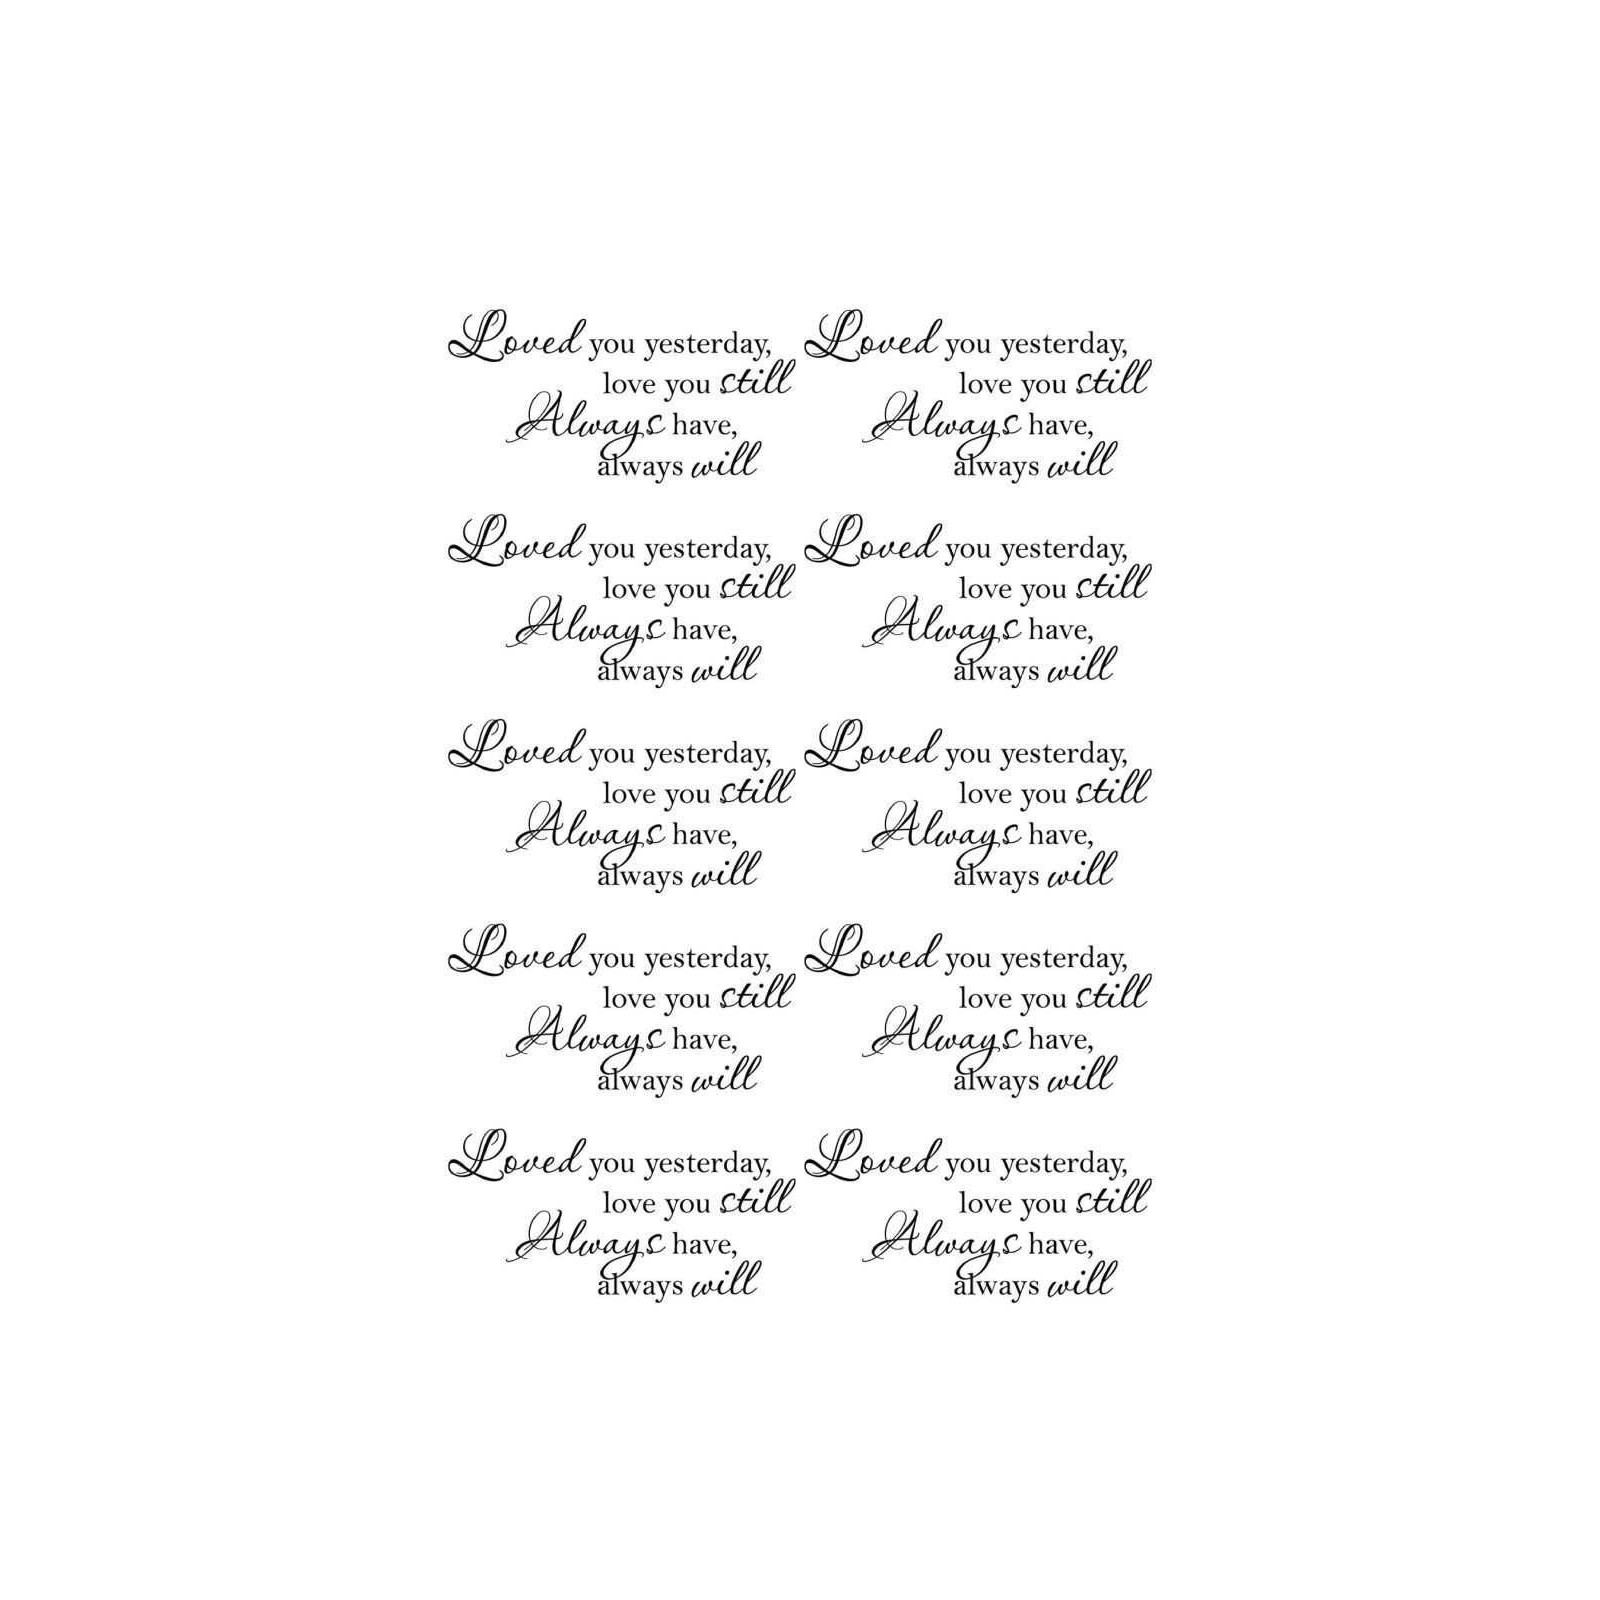 Loved you yesterday,
love you still
Always have,
always will
Loved you yesterday,
love you still
Always have,
always will
Loved you yesterday,
love you still
Always have,
always will
Loved you yesterday,
love you still
Always have,
always will
Loved you yesterday,
love you still
Always have,
always will
Loved you yesterday,
love you still
Always have,
always will
Loved you yesterday,
love you still
Always have,
always will
Loved you yesterday,
love you still
Always have,
always will
Loved you yesterday,
love you still
Always have,
always will
Loved you yesterday,
love you still
Always have,
always will